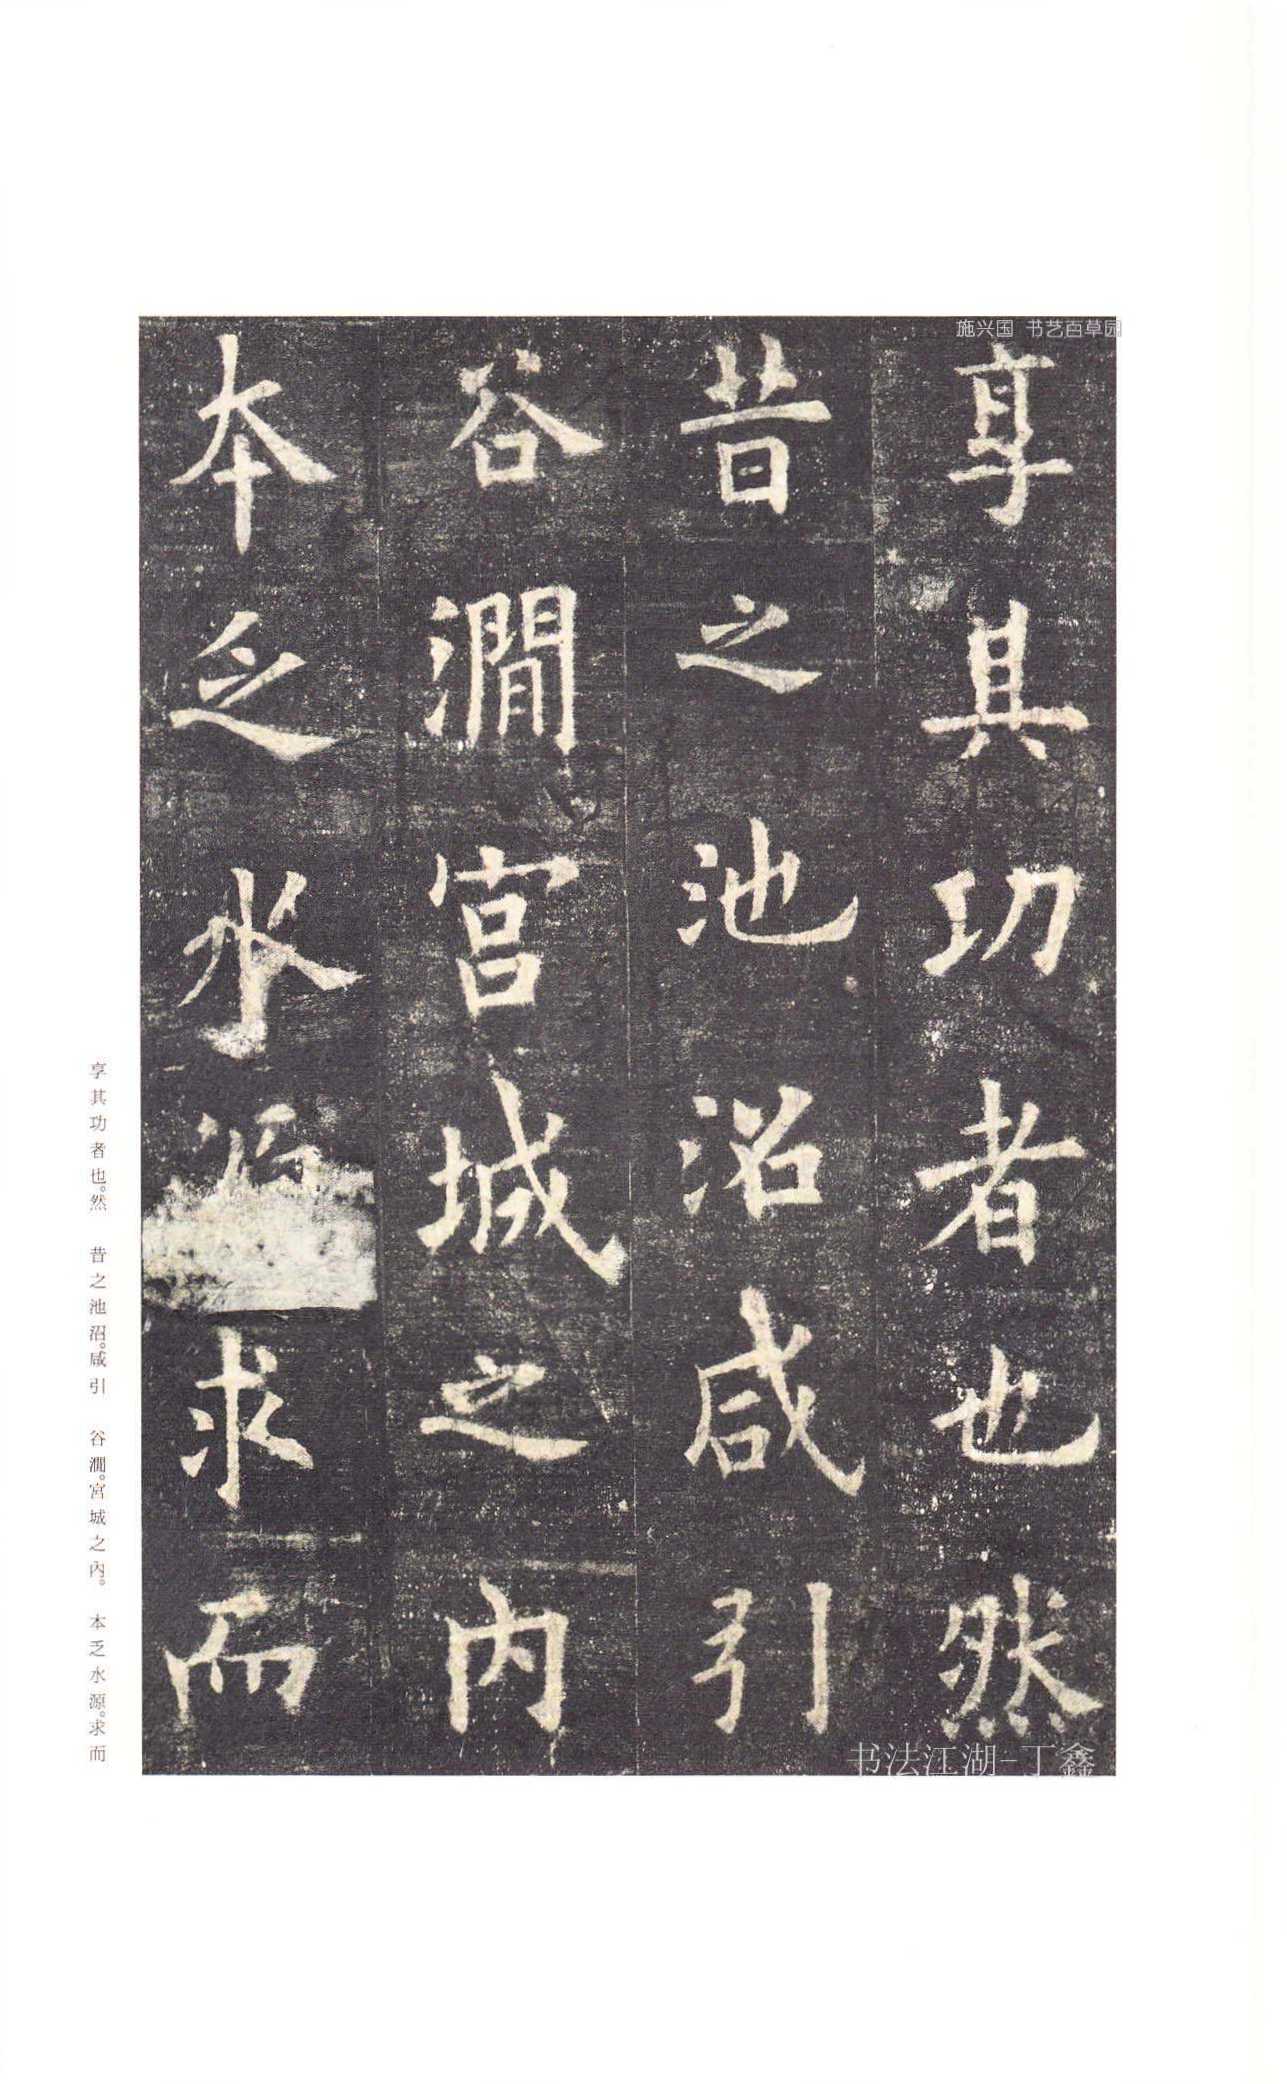 施兴国 书艺百草园
享其功者也然
昔之池沼咸引
谷澗宮城之内
本乏水源求而
享其功者也。然 昔之池沼。咸引 谷澗。宮城之內。 本乏水源。求而
书法江湖-丁鑫